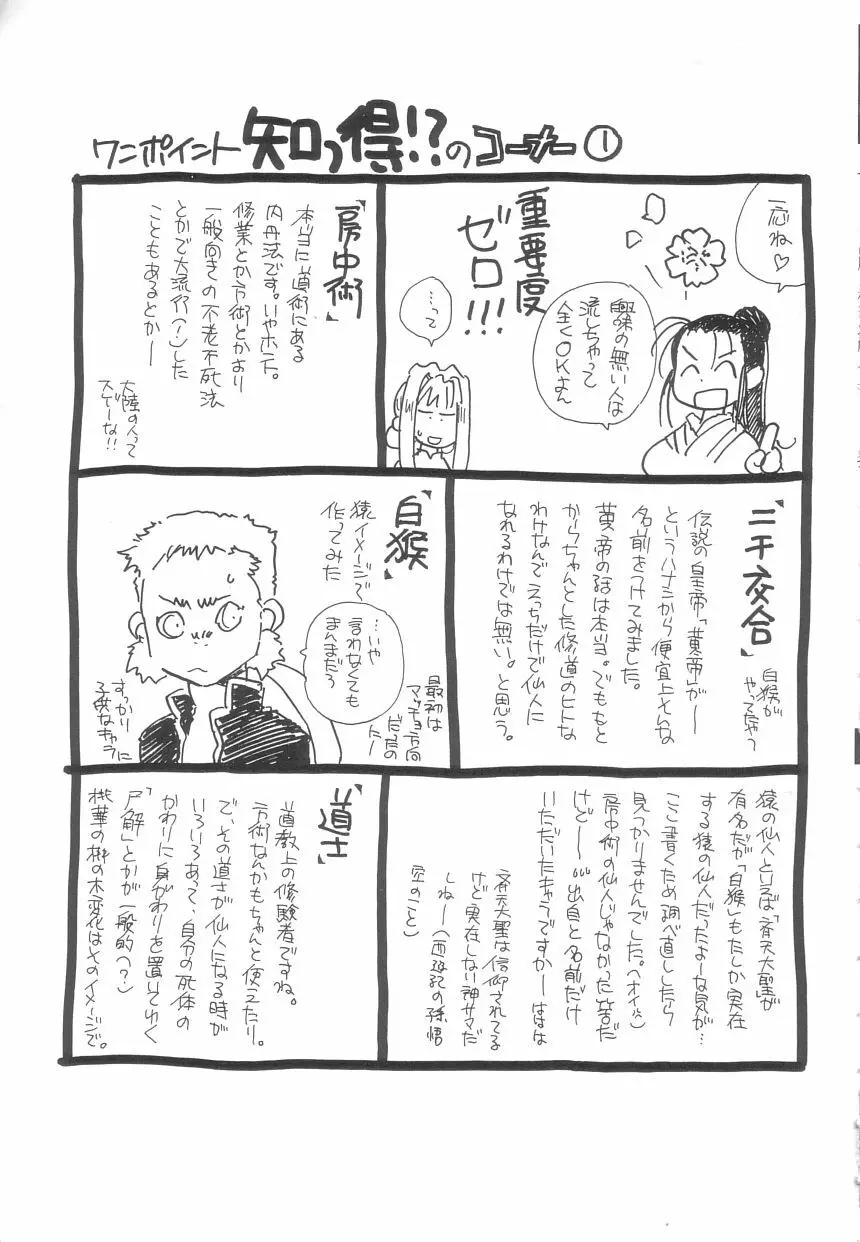 ワンポイント 知っ得!?のコーナー①
一応ね♡
興味の無い人は
流しちゃって
全くOKよん
重要度
ゼロ!!!
…って
「房中術」
本当に道術にある
内丹法です。いやホント。
修業とか方術とかより
一般向きの不老不死法
とかで大流行(?)した
こともあるとかー
大陸の人って
スゲーな!!
「二千交合」
伝説の皇帝「黄帝」がー
というハナシから便宜上そんな
名前をつけてみました。
黄帝の話は本当。でももと
からちゃんとした修道のヒトな
わけなんでえっちだけで仙人に
なれるわけでは無い。と思う。
白猴が
やってたやつ
「白猴」
猿イメージで
作ってみた
…いや
言わなくても
まんまだろ
最初は
マッチョ方向
だったの
にー
すっかり
子供なキャラに
猿の仙人といえば「斉天大聖」が
有名だが「白猴」もたしか実在
する猿の仙人だったよーな気が…
ここ書くため調べ直ししたら
見つかりませんでした。(オイ)
房中術の仙人じゃなかった筈だ
けどー 出自と名前だけ
いただいたキャラですかーははは
斉天大聖は信仰されてる
けど実在しない神サマだ
しねー(西遊記の孫悟
空のこと)
「道士」
道教上の修験者ですね。
方術なんかもちゃんと使えたり。
で、その道士が仙人になる時が
いろいろあって、自分の死体の
かわりに身がわりを置いてゆく
「尸解」とかが一般的(?)
桃華の木変化はそのイメージで。